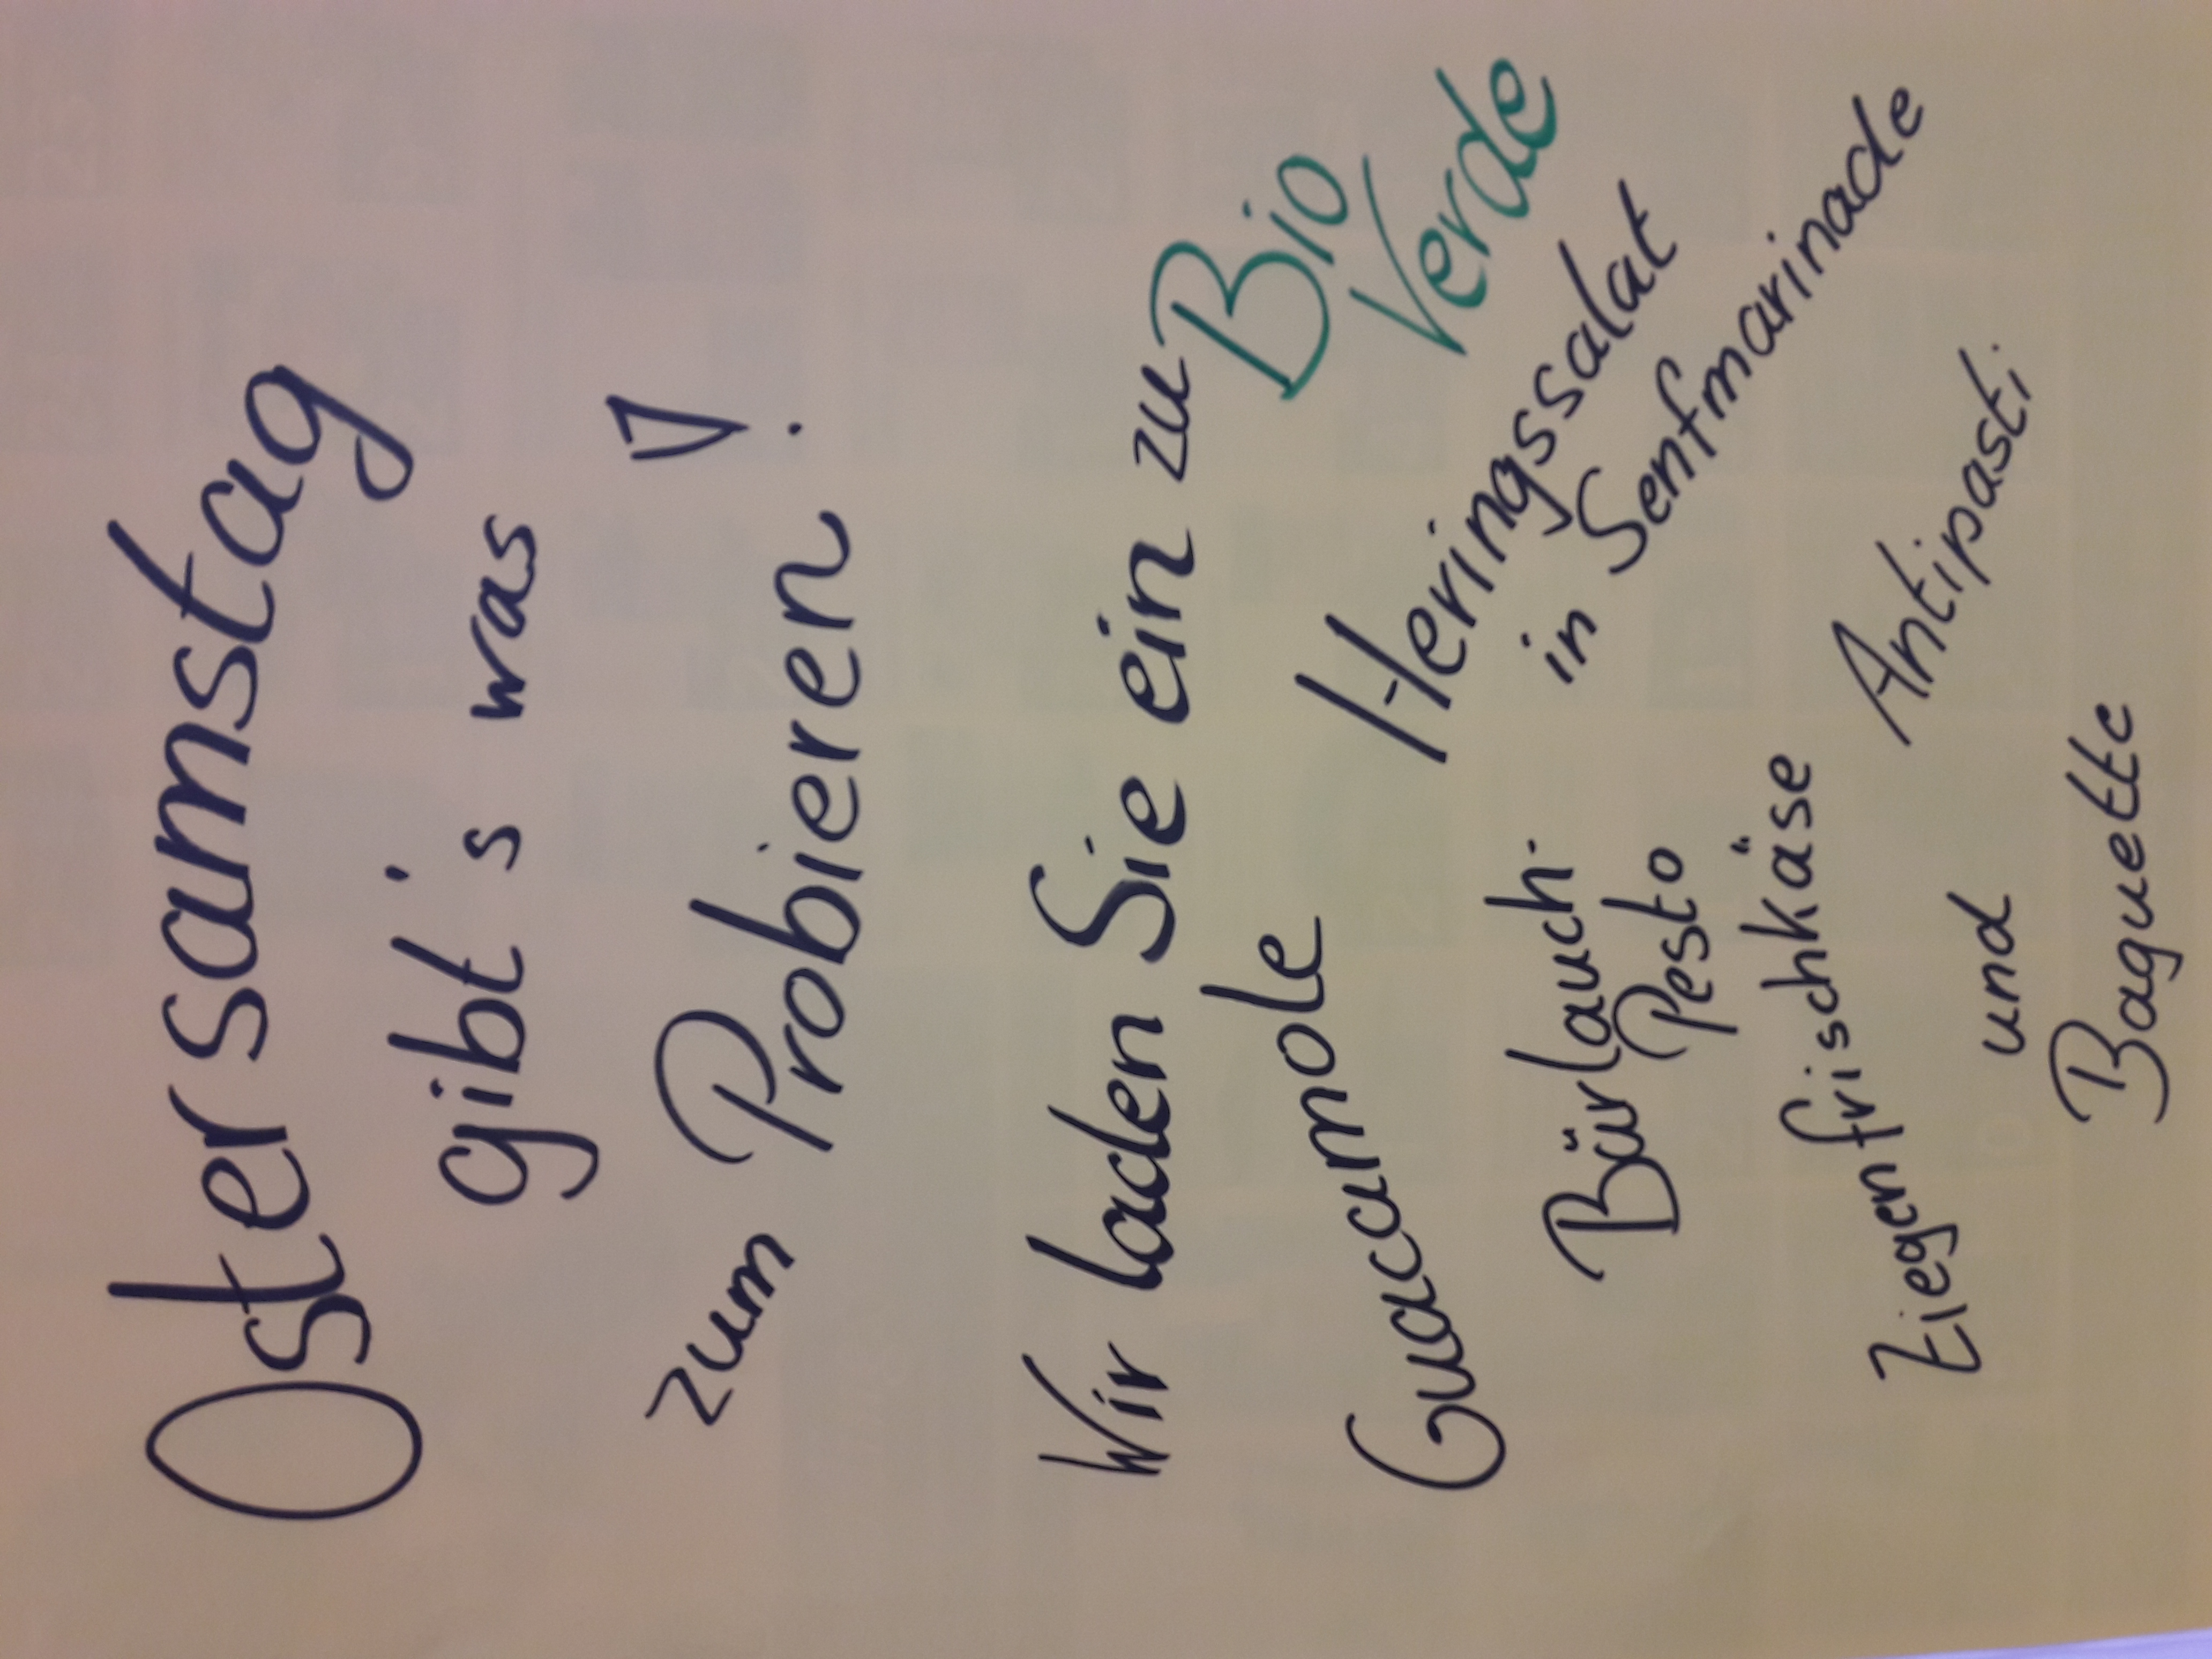 Ostersamstag
gibt's was
zum Probieren!
Wir laden Sie ein zu
Bio
Verde
Guacamole
Heringssalat
in Senfmarinade
Bärlauch-
Pesto
Ziegenfrischkäse
Antipasti
und
Baguette